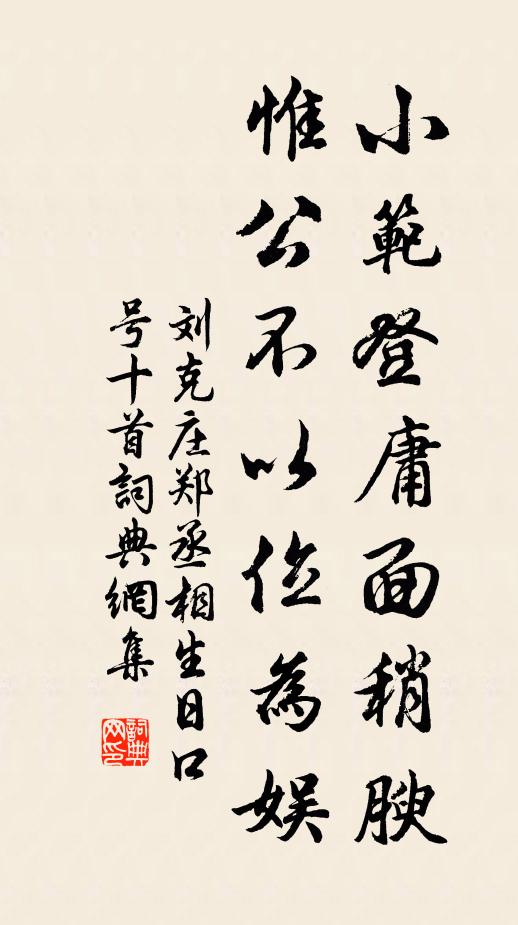 小範登庸面稍腴
惟公不以位為娛
刘克庄郑丞相生日口
号十首詞典網集
詞典网印